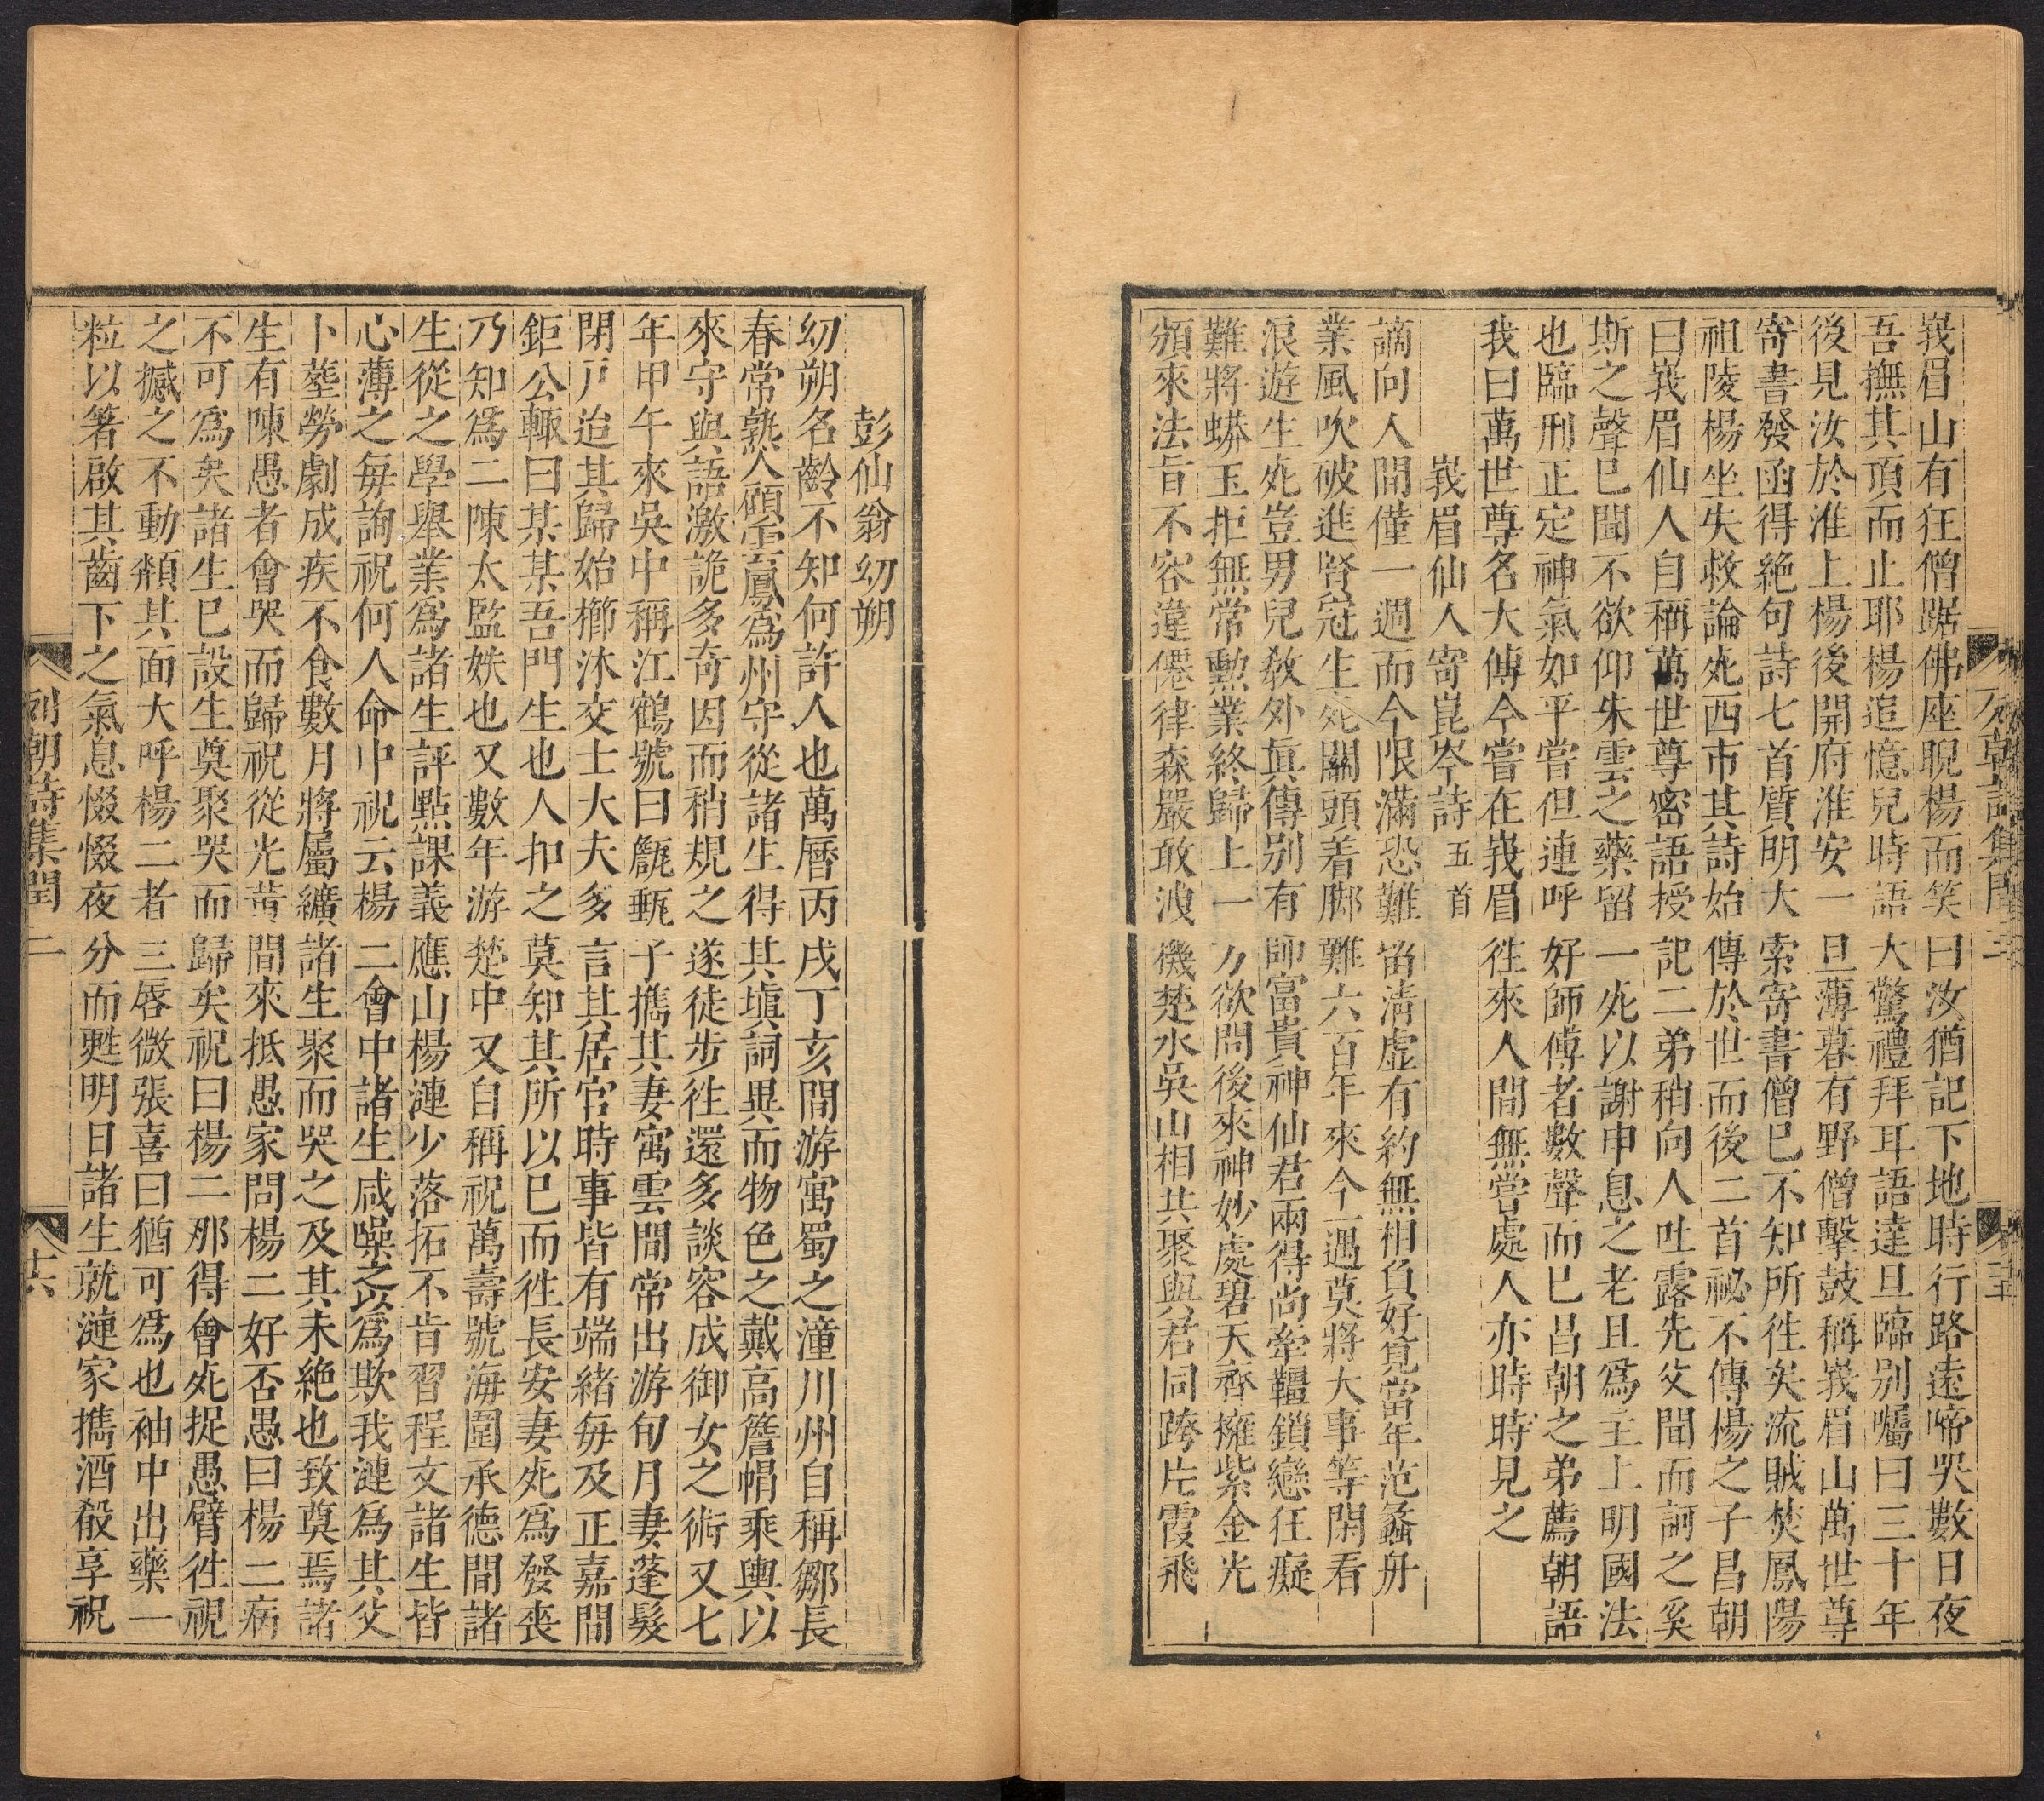 峩眉山有狂僧踞佛座睨楊而笑曰汝猶記下地時行路遠啼哭數日夜
吾撫其頂而止耶楊追憶兒時語大驚禮拜耳語達旦臨別囑曰三十年
後見汝於淮上楊後開府淮安一旦薄暮有野僧擊鼓稱峩眉山萬世尊
寄書發函得絶句詩七首質明大索寄書僧巳不知所徃矣流賊焚鳳陽
祖陵楊坐失救論死西市其詩始傳於世而後二首祕不傳楊之子昌朝
曰峩眉仙人自稱萬世尊密語授記二弟稍向人吐露先父聞而訶之奚
斯之聲巳聞不欲仰朱雲之藥留一死以謝申息之老且爲主上明國法
也臨刑正定神氣如平嘗但連呼好師傅者數聲而巳昌朝之弟薦朝語
我曰萬世尊名大傅今嘗在峩眉徃來人間無嘗處人亦時時見之
峩眉仙人寄崑岑詩五首
謫向人間僅一週而今限滿恐難留清虛有約無相負好覓當年范蠡舟
業風吹破進賢冠生死關頭着脚難六百年來今一遇莫將大事等閑看
浪遊生死豈男兒敎外眞傳別有師富貴神仙君兩得尚牽韁鎖戀狂癡
難將蟒玉拒無常勲業終歸土一方欲問後來神妙處碧天齊擁紫金光
頻來法旨不容違僊律森嚴敢洩機楚水吳山相共聚與君同跨片霞飛
列朝詩集閏二
彭仙翁幻朔
幻朔名齡不知何許人也萬曆丙戌丁亥間游寓蜀之潼川州自稱鄒長
春常熟人顧雲鳳爲州守從諸生得其塡詞異而物色之戴高簷帽乘輿以
來守與語激詭多奇因而稍規之遂徒步徃還多談容成御女之術又七
年甲午來吳中稱江鶴號曰甔甀子攜其妻寓雲間常出游旬月妻蓬髮
閉戸迨其歸始櫛沐交士大夫多言其居官時事皆有端緒每及正嘉間
鉅公輒曰某某吾門生也人扣之莫知其所以巳而徃長安妻死爲發喪
乃知爲二陳太監姝也又數年游楚中又自稱祝萬壽號海圍承德間諸
生從之學舉業爲諸生評點課義應山楊漣少落拓不肯習程文諸生皆
心薄之每詢祝何人命中祝云楊二會中諸生咸噪之以爲欺我漣爲其父
卜塟勞劇成疾不食數月將屬纊諸生聚而哭之及其未絶也致奠焉諸
生有陳愚者會哭而歸祝從光黃間來抵愚家問楊二好否愚曰楊二病
不可爲矣諸生巳設生奠聚哭而歸矣祝曰楊二那得會死捉愚臂徃視
之撼之不動頮其面大呼楊二者三唇微張喜曰猶可爲也袖中出藥一
粒以箸啟其齒下之氣息惙惙夜分而甦明日諸生就漣家攜酒殽享祝
列朝詩集閏二
十六